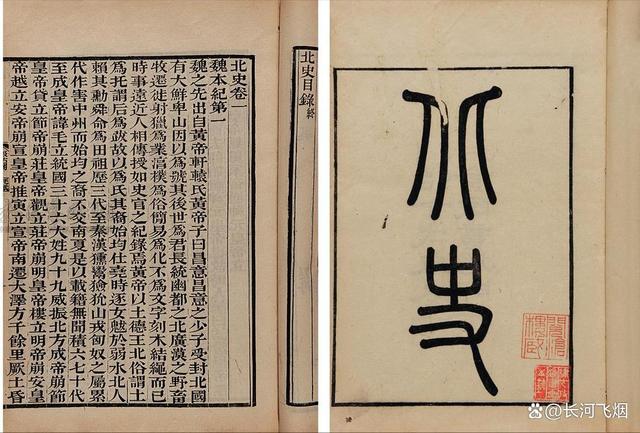 北史
北史目錄 終
北史卷一
魏本紀第一
魏之先出自黃帝軒轅氏黃帝子曰昌意昌意之少子受封北國
有大鮮卑山因以爲號其後世爲君長統幽都之北廣漠之野畜
牧遷徙射獵爲業淳樸爲俗簡易爲化不爲文字刻木結繩而已
時事遠近人相傳授如史官之紀錄焉黃帝以土德王北俗謂土
爲托謂后爲跋故以爲氏其裔始均仕堯時逐女魃於弱水北人
賴其勳舜命爲田祖歷三代至秦漢獯鬻獫狁山戎匈奴之屬累
代作害中州而始均之裔不交南夏是以載籍無聞積六七十代
至成皇帝諱毛立統國三十六大姓九十九威振北方成帝崩節
皇帝貸立節帝崩莊皇帝觀立莊帝崩明皇帝樓立明帝崩安皇
帝越立安帝崩宣皇帝推寅立宣帝南遷大澤方千餘里厥土昏
@长河飞烟